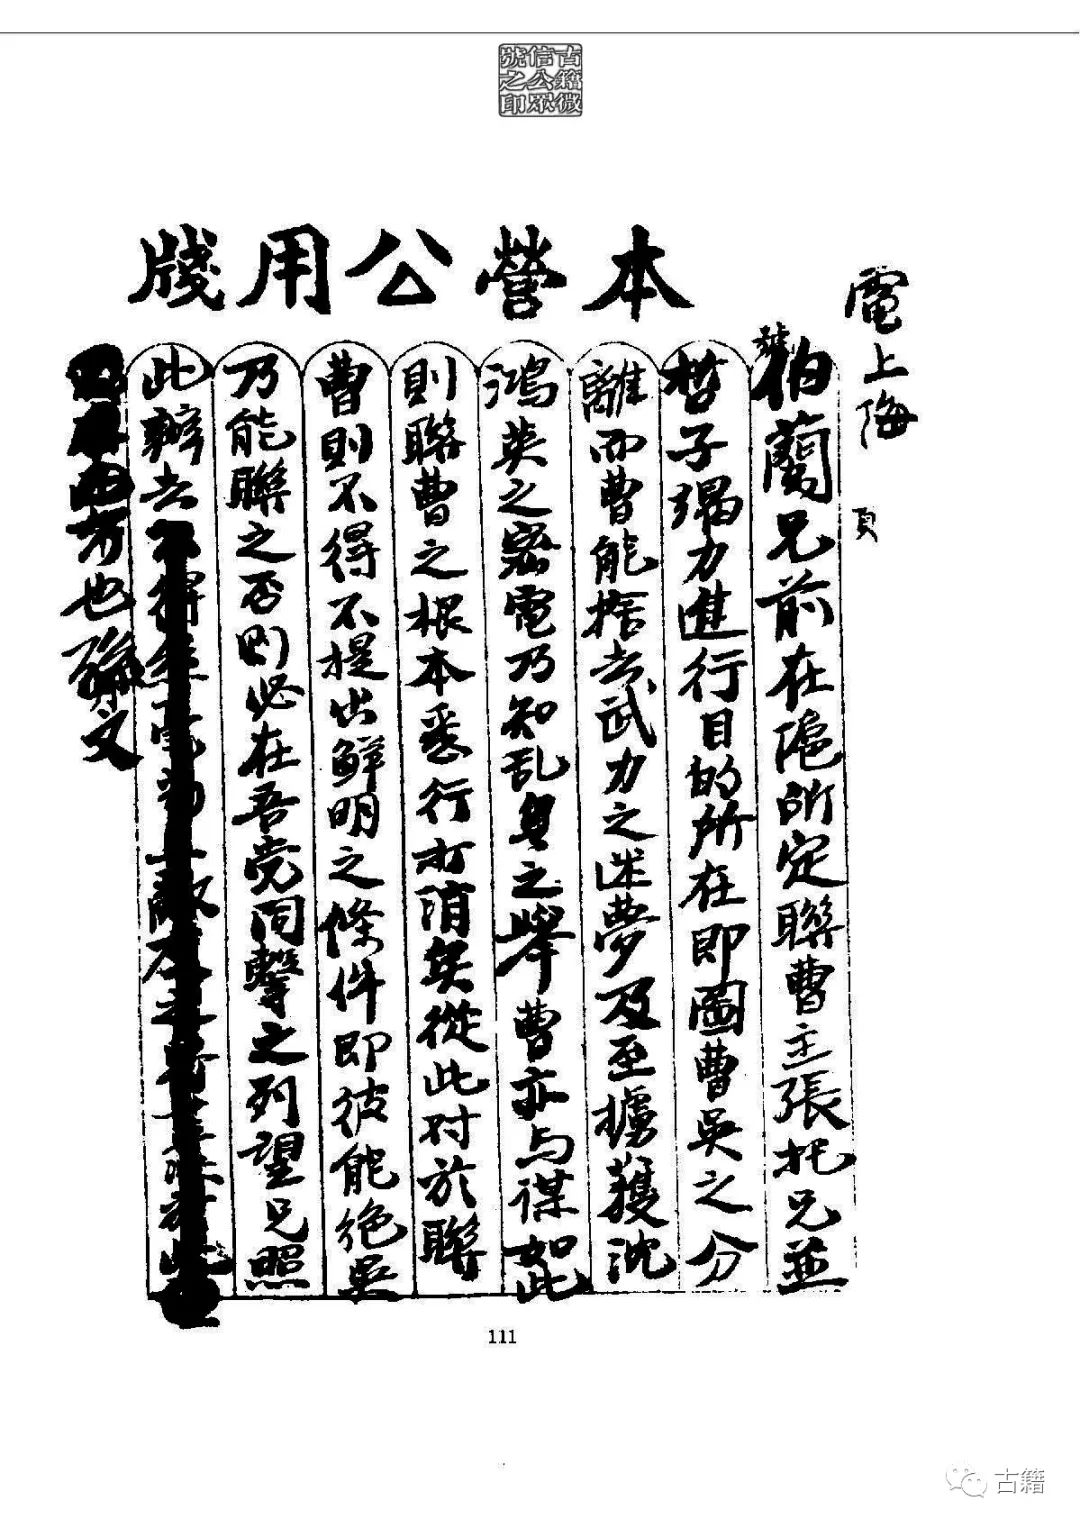 古籍微
信公眾
號之印
本營公用牋
電上海
頁
伯蘭兄前在滬所定聯曹主張托兄並
哲子竭力進行目的所在即圖曹吳之分
離而曹能捨去武力之迷夢及至擄獲沈
鴻英之密電乃知乱粵之舉曹亦与謀如此
則聯曹之根本悉行打消矣從此对於聯
曹則不得不提出鮮明之條件即彼能绝吳
乃能聯之否则必在吾党同擊之列望兄照
此辦去
方也孫文
111
古籍